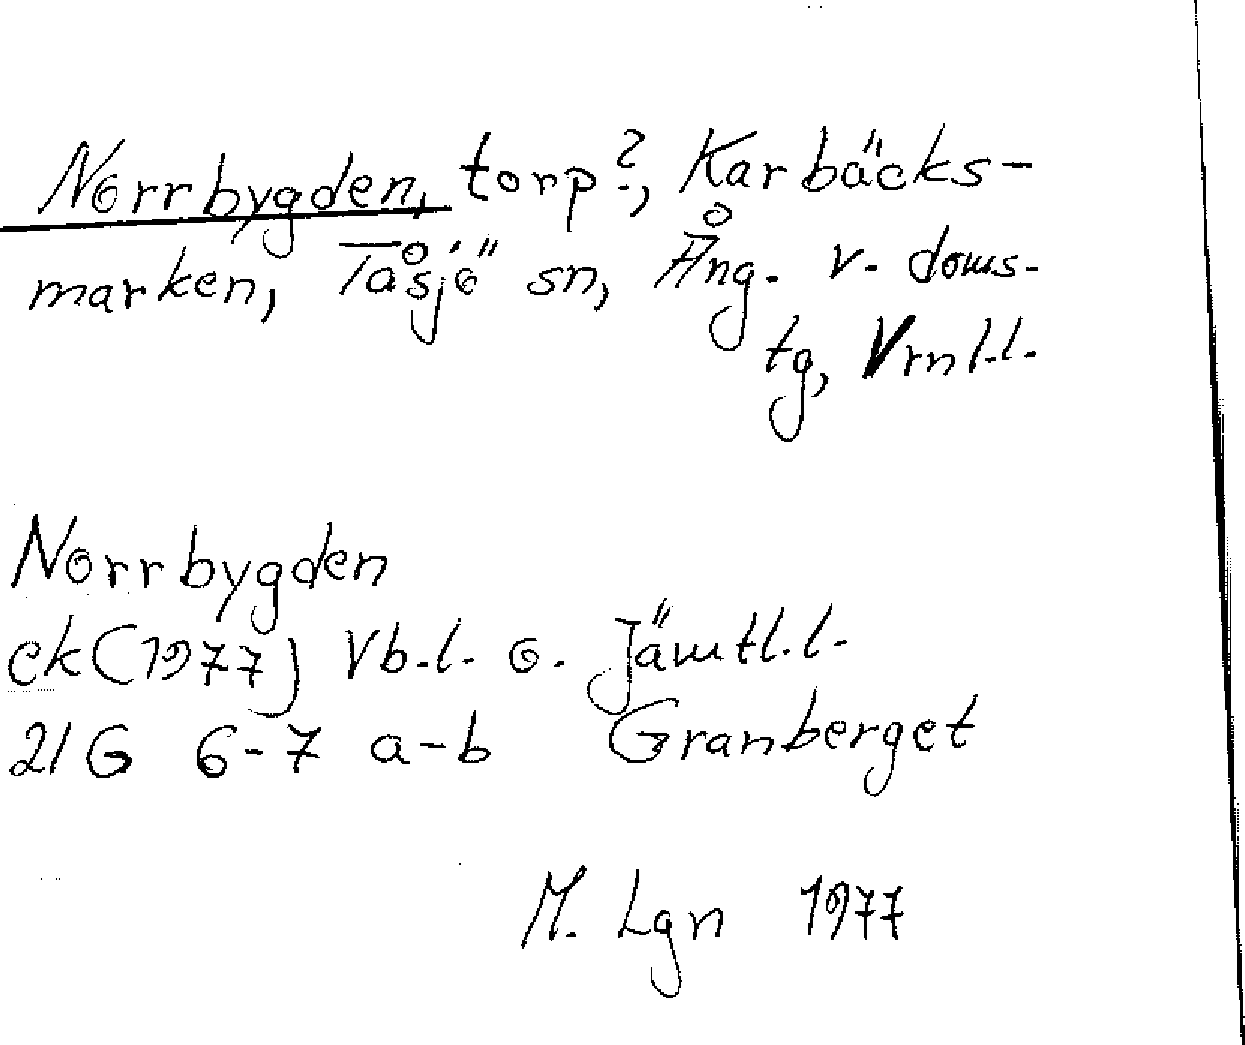 Norrbygden, torp?, Karbäcks-
marken, Tåsjö sn, Ång. v. doms-
tg, Vrnl.l.
Norrbygden
ek (1977) Vb.l. o. Jämtl.l.
21G 6-7 a-b Granberget
M. Lgn 1977